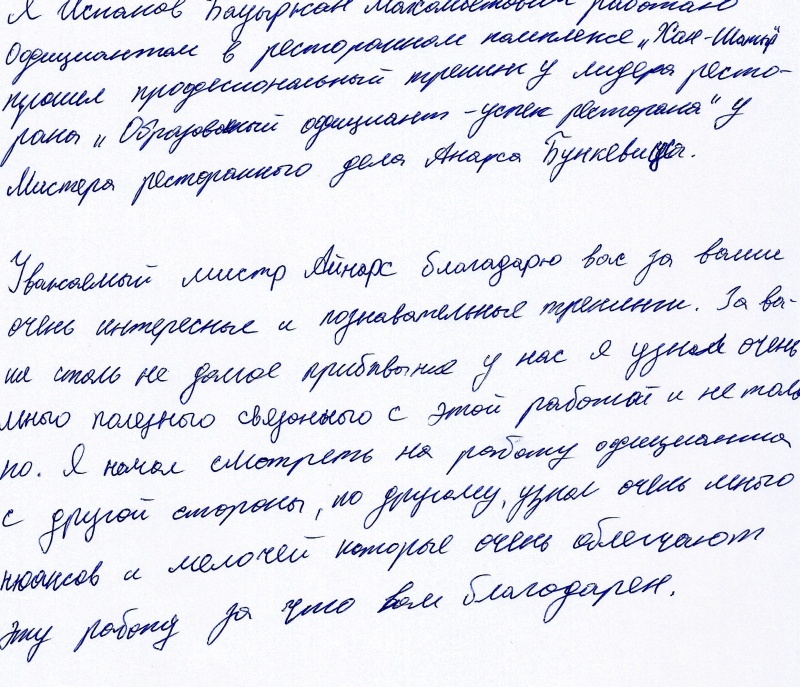 Я Испанов Бауыржан Махамбетович работаю
официантом в ресторанном комплексе „Хан-Шатыр"
прошел професиональный тренинг у лидера ресто-
рана „Образованный официант - успех ресторана" у
Мистера ресторанного дела Анарса Бункевица.
Уважаемый мистр Айнарс благодарю вас за ваши
очень интересные и познавательные тренинги. За ва-
ше столь не долгое прибывание у нас я узнал очень
много полезного связанного с этой работай и не толь
ко. Я начал смотреть на работу официанта
с другой стороны, по другому, узнал очень много
нюансов и мелочей которые очень облегчают
эту работу за что вам благодарен.